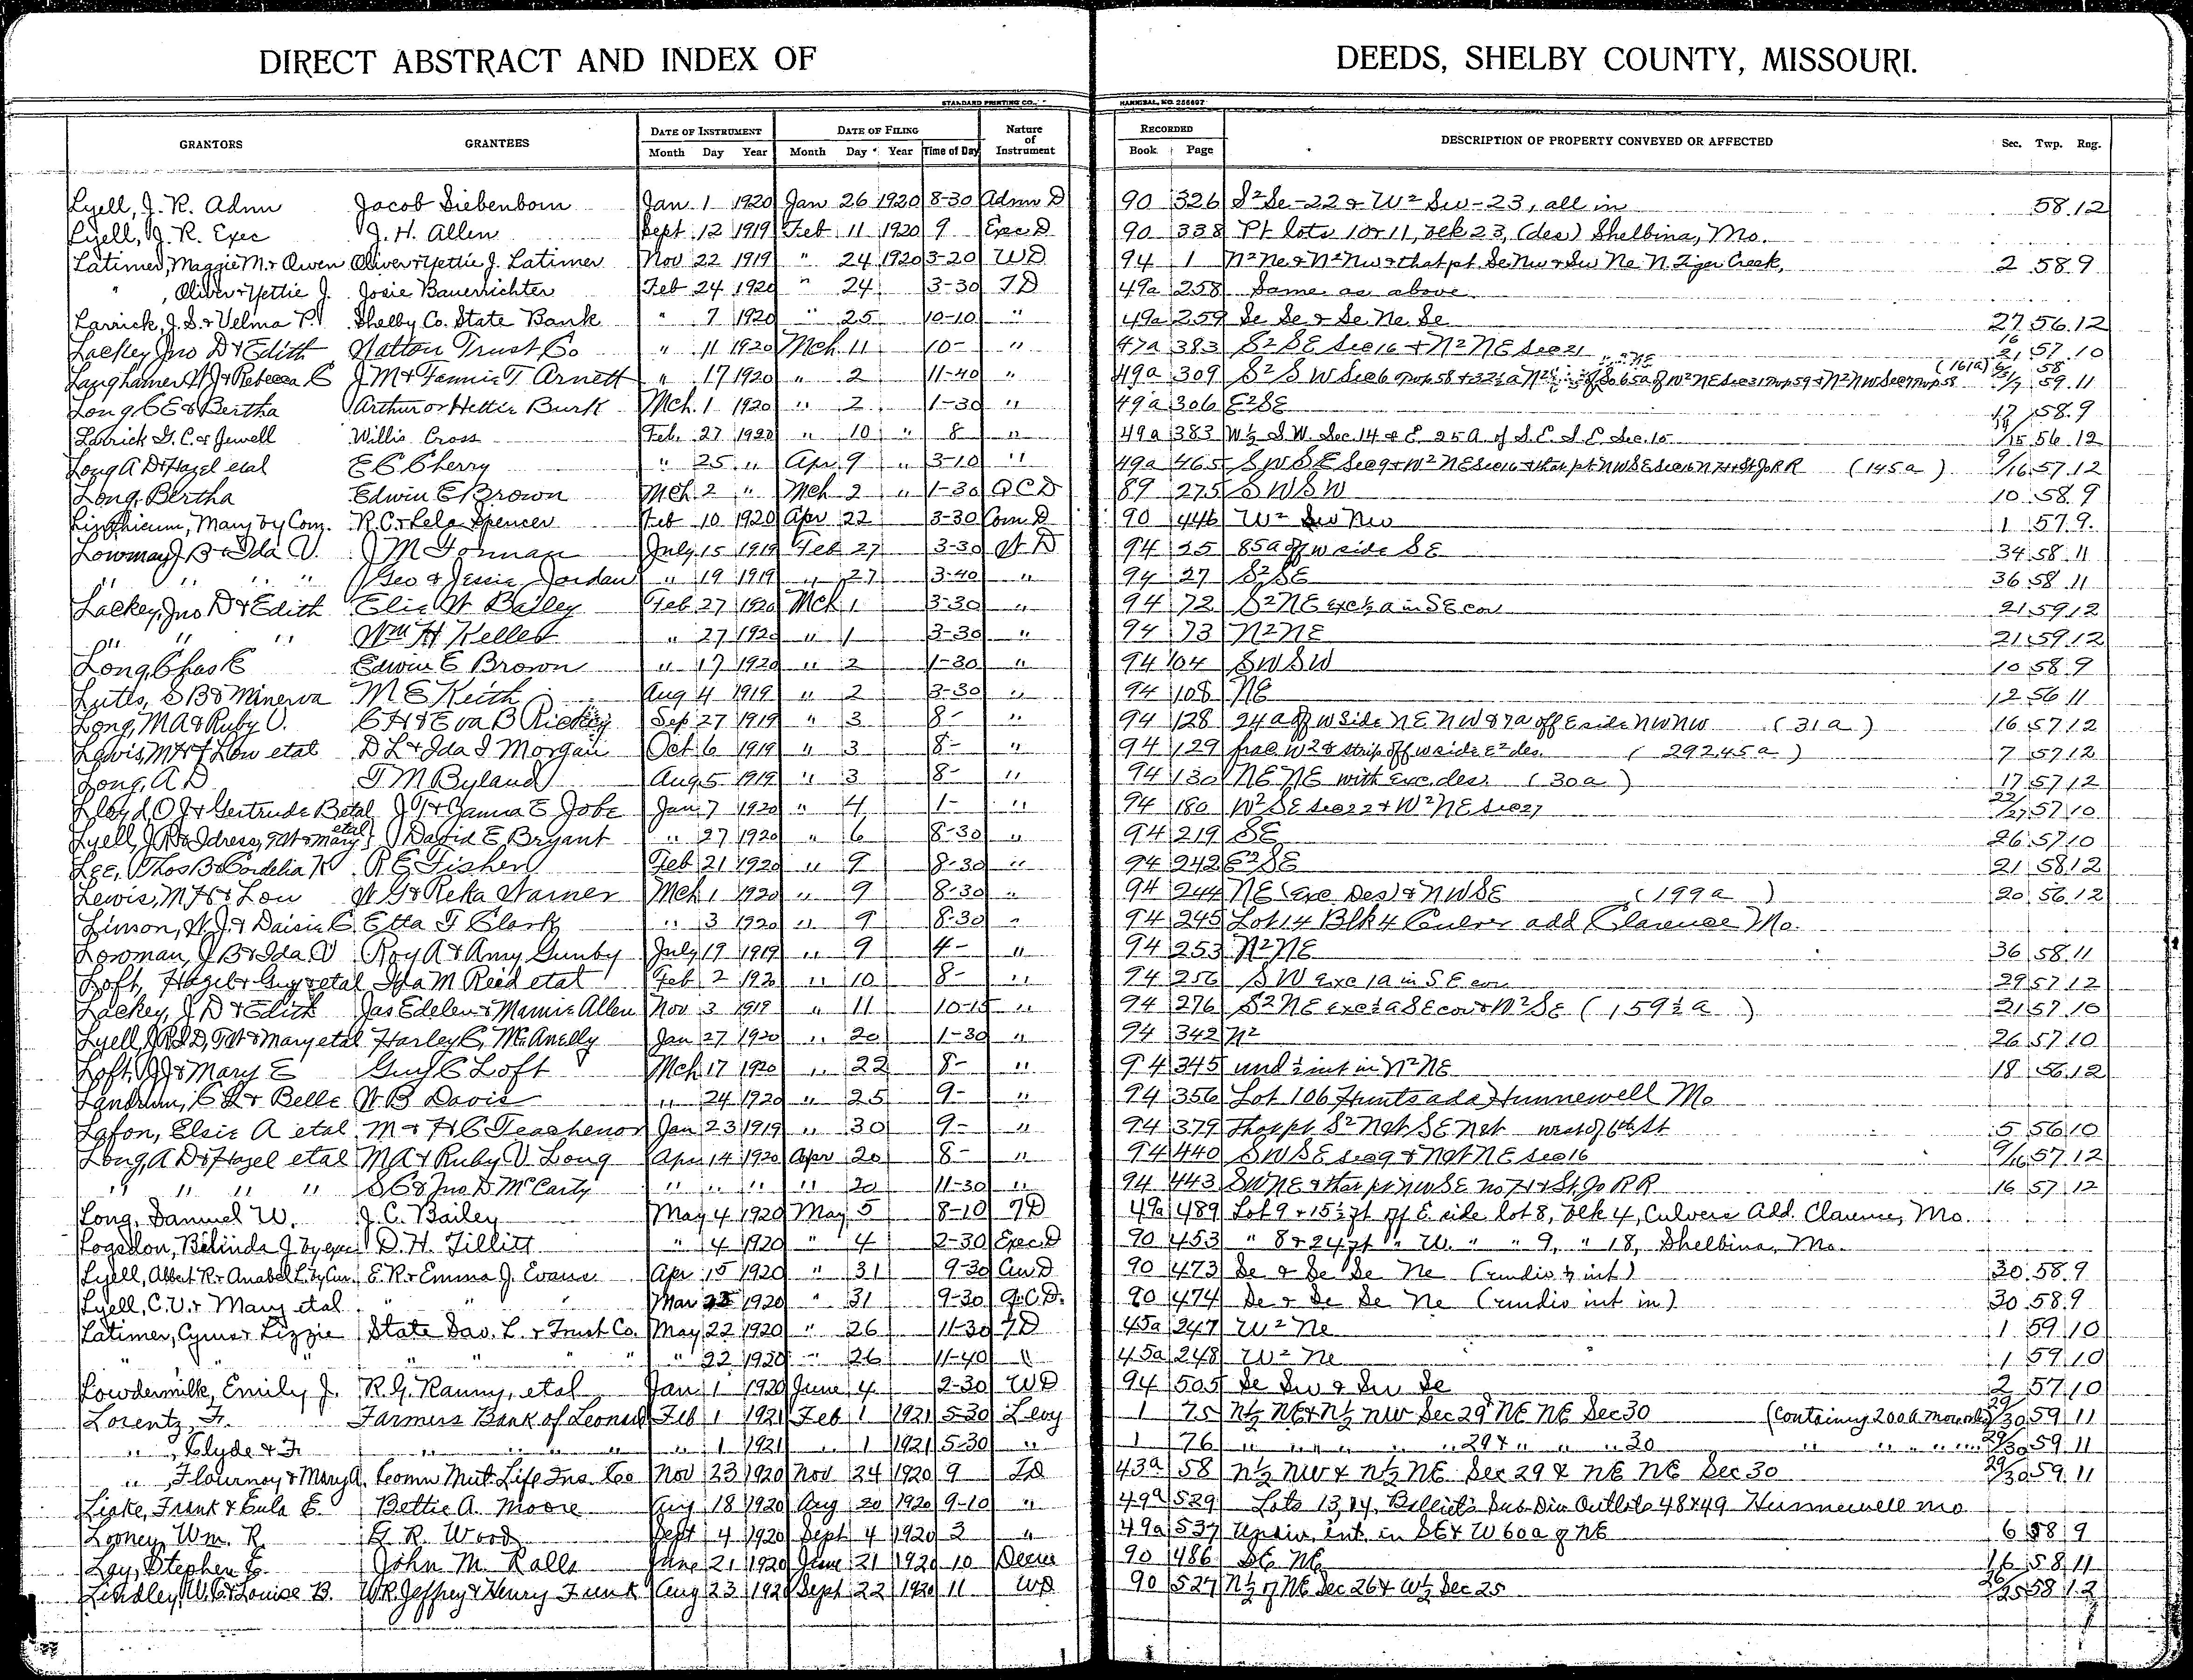 DIRECT ABSTRACT AND INDEX OF DEEDS, SHELBY COUNTY, MISSOURI.
STANDARD PRINTING CO., HANNIBAL, NO. 256697
GRANTORS GRANTEES DATE OF INSTRUMENT DATE OF FILING Nature of Instrument RECORDED DESCRIPTION OF PROPERTY CONVEYED OR AFFECTED Sec. Twp. Rng.
Month Day Year Month Day Year Time of Day Book Page
Lyell, J. R. Admr Jacob Siebenborn Jan 1 1920 Jan 26 1920 8-30 Admr D 90 326 S² Se-22 & W² Sw-23, all in 58 12
Lyell, J. R. Exec J. H. Allen Sept 12 1919 Feb 11 1920 9 Exec D 90 338 Pt lots 10 & 11, blk 23, (des) Shelbina, Mo.
Latimer, Maggie M. & Owen Oliver & Yettie J. Latimer Nov 22 1919 " 24 1920 3-20 WD 94 1 N² Ne & N² Nw & that pt Se Nw & Sw Ne N. Tiger Creek, 2 58 9
" , Oliver & Yettie J. Josie Bauerrichter Feb 24 1920 " 24 3-30 TD 49a 258 Same as above
Larrick, J. S. & Velma P. Shelby Co. State Bank " 7 1920 " 25 10-10 " 49a 259 Se Se & Se Ne Se 27 56 12
Lackey Jno D & Edith Natton Trust Co " 11 1920 Mch 11 10- " 47a 383 S² SE Sec 16 & N² NE Sec 21 16/21 57 10
Langhamer W J & Rebecca C J M & Fannie T. Arnett " 17 1920 " 2 11-40 " 49a 309 S² S W Sec 6 Twp 58 & 32½ a N² of So 65a of W² NE Sec 31 Twp 59 & N² NW Sec 7 Twp 58 (161a) 59 11
Long C E & Bertha Arthur or Hettie Burk Mch 1 1920 " 2 1-30 " 49a 306 E² SE 17 58 9
Larrick G. C. & Jewell Willis Cross Feb. 27 1920 " 10 " 8 " 49a 383 W½ S.W. Sec. 14 & E. 25 A of S.E. S.E. Sec. 15 14/15 56 12
Long A D & Hazel etal E C Cherry " 25 " Apr 9 " 3-10 " 49a 465 S W S E Sec 9 & W² NE Sec 16 & that pt NW SE Sec 16 N H & St Jo R R (145a) 9/16 57 12
Long, Bertha Edwin E Brown Mch 2 " Mch 2 " 1-30 QCD 89 275 S W S W 10 58 9
Linthicum, Mary by Com. R.C. & Lela Spencer Feb 10 1920 Apr 22 3-30 Com D 90 446 W² Sw Nw 1 57 9
Lowman J B & Ida V. J M Forman July 15 1919 Feb 27 3-30 W D 94 25 85a off w side S E 34 58 11
" " " " Geo & Jessie Jordan " 19 1919 " 27 3-40 " 94 27 S² SE 36 58 11
Lackey, Jno D & Edith Elic W Bailey Feb 27 1920 Mch 1 3-30 " 94 72 S² NE exc ½ a in S E cor 21 59 12
" " " Wm H Keller " 27 1920 " 1 3-30 " 94 73 N² NE 21 59 12
Long, Chas E Edwin E Brown " 17 1920 " 2 1-30 " 94 104 SW SW 10 58 9
Lutes, S B & Minerva M E Keith Aug 4 1919 " 2 3-30 " 94 108 NE 12 56 11
Long, M A & Ruby V. C H & Eva B Richey Sep 27 1919 " 3 8- " 94 128 24 a off w side N E N W & 7a off E side NW NW (31a) 16 57 12
Lewis, M H & Lou etal D L & Ida I Morgan Oct 6 1919 " 3 8- " 94 129 frac W² & strip off w side E² des. (292.45a) 7 57 12
Long, A D T M Byland Aug 5 1919 " 3 8- " 94 130 NE NE with exc. des. (30a) 17 57 12
Lloyd O J & Gertrude B etal J T & Janna E Jobe Jan 7 1920 " 4 1- " 94 180 W² S E Sec 22 & W² NE Sec 27 22/27 57 10
Lyell, J R & Idress, T W & Mary etal David E Bryant " 27 1920 " 6 8-30 " 94 219 SE 26 57 10
Lee, Thos B & Cordelia K R E Fisher Feb 21 1920 " 9 8-30 " 94 242 E² SE 21 58 12
Lewis, M H & Lou W G & Reka Warner Mch 1 1920 " 9 8-30 " 94 244 NE (Exc Des) & NW SE (199a) 20 56 12
Linson, W. J. & Daisie C Etta F Clark " 3 1920 " 9 8-30 " 94 245 Lot 14 Blk 4 Culver add Clarence Mo.
Lowman, J B & Ida V Roy A & Amy Gunby July 19 1919 " 9 4- " 94 253 N² NE 36 58 11
Loft, Hazel & Guy & etal Ida M Reid etal Feb 2 1920 " 10 8- " 94 256 S W exc 1a in S E cor 29 57 12
Lackey, J D & Edith Jas Edelen & Mamie Allen Nov 3 1919 " 11 10-15 " 94 276 S² NE exc ½ a SE cor & N² SE (159½ a) 21 57 10
Lyell, J R & D, T W & Mary etal Harley C. McAnelly Jan 27 1920 " 20 1-30 " 94 342 N² 26 57 10
Loft, J J & Mary E Guy C Loft Mch 17 1920 " 22 8- " 94 345 und ½ int in N² NE 18 56 12
Landrum, C L & Belle W B Davis " 24 1920 " 25 9- " 94 356 Lot 106 Hunts add Hunnewell Mo
Lafon, Elsie A etal M & H C Teachenor Jan 23 1919 " 30 9- " 94 379 That pt S² Not S E Not west of 6th St 5 56 10
Long, A D & Hazel etal M A & Ruby V. Long Apr 14 1920 Apr 20 8- " 94 440 S W S E Sec 9 & Not NE Sec 16 9/16 57 12
" " " " S C & Jno D McCarty " " " " 20 11-30 " 94 443 SW NE & that pt NW SE no H & St. Jo R R 16 57 12
Long, Samuel W. J. C. Bailey May 4 1920 May 5 8-10 TD 49a 489 Lot 9 & 15½ ft off E. side lot 8, blk 4, Culvers Add. Clarence, Mo.
Logsdon, Belinda J by exec D. H. Tillitt " 4 1920 " 4 2-30 Exec. D 90 453 " 8 & 24 ft " W. " " 9, " 18, Shelbina, Mo.
Lyell, Albert R. & Anabel L. by Cur. E. R. & Emma J. Evans Apr 15 1920 " 31 9-30 Cur D 90 473 Se & Se Se Ne (undiv ½ int) 30 58 9
Lyell, C. V. & Mary etal " " " Mar 25 1920 " 31 9-30 Q.C.D. 90 474 Se & Se Se Ne (undiv int in) 30 58 9
Latimer, Cyrus & Lizzie State Sav. L. & Trust Co. May 22 1920 " 26 11-30 TD 45a 247 W² Ne 1 59 10
" " " " " " " 22 1920 " 26 11-40 " 45a 248 W² Ne 1 59 10
Lowdermilk, Emily J. R. G. Ranny, etal Jan 1 1920 June 4 2-30 WD 94 505 Se Sw & Sw Se 2 57 10
Lorentz, F. Farmers Bank of Leonard Feb 1 1921 Feb 1 1921 5-30 Levy 1 75 N½ NE & N½ NW Sec 29 & NE NE Sec 30 (Containing 200 A more or less) 29/30 59 11
" , Clyde & F. " " " " " 1 1921 " 1 1921 5-30 " 1 76 " " " " " " 29 & " " " 30 " " " " " 29/30 59 11
" , Flournoy & Mary A. Comm Mut. Life Ins. Co Nov 23 1920 Nov 24 1920 9 TD 43a 58 N½ NW & N½ NE Sec 29 & NE NE Sec 30 29/30 59 11
Liake, Frank & Eula E. Bettie A. Moore Aug 18 1920 Aug 20 1920 9-10 " 49a 529 Lots 13, 14, Sub Div Outlots 48 & 49 Hunnewell Mo
Looney, Wm. R. G. R. Wood Sept 4 1920 Sept 4 1920 3 " 49a 537 Undiv. int. in SE & W 60 a of NE 6 58 9
Lay, Stephen E. John M. Ralls June 21 1920 June 21 1920 10 Decree 90 486 SE NE 16 58 11
Lindley, W. C. & Louise B. W.R. Jeffrey & Henry Funk Aug 23 1920 Sept 22 1920 11 WD 90 527 N½ of NE Sec 26 & W½ Sec 25 26/25 58 12